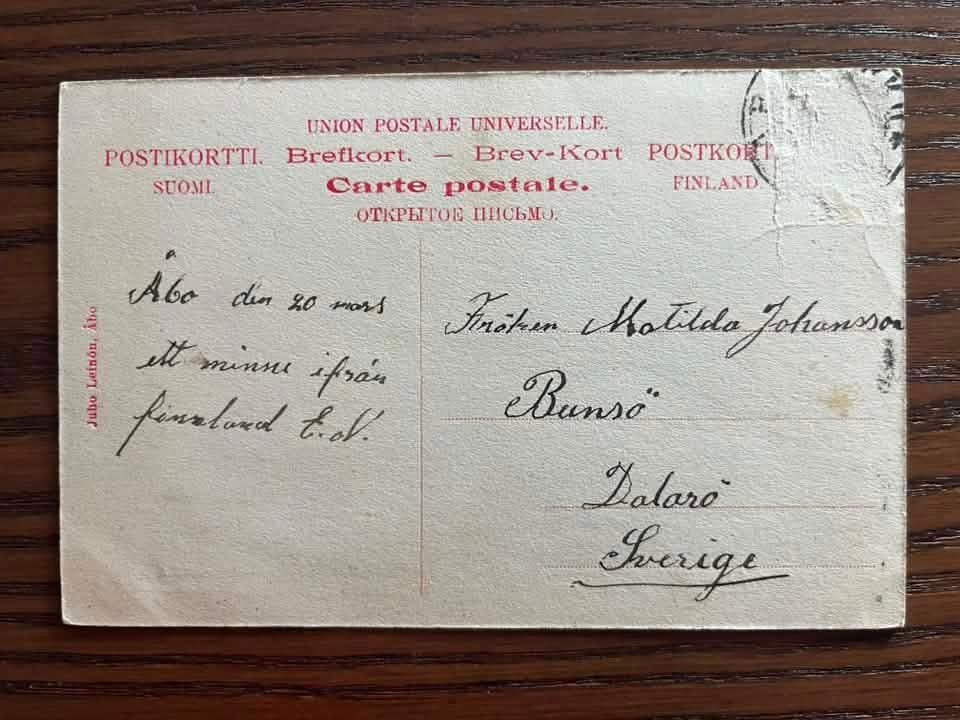 UNION POSTALE UNIVERSELLE.
POSTIKORTTI. Brefkort. — Brev-Kort POSTKORT.
SUOMI. Carte postale. FINLAND.
ОТКРЫТОЕ ПИСЬМО.
Åbo den 20 mars
ett minne ifrån
finnland E. N.
Juho Leinön, Åbo
Fröken Matilda Johansson
Bunsö
Dalarö
Sverige